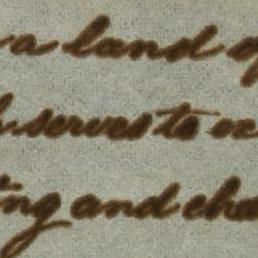 a land
serves to
ing and cha